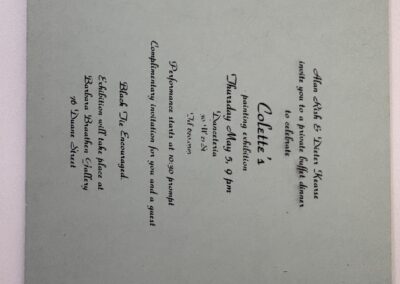 Alan Kish & Dieter Kearse
invite you to a private buffet dinner
to celebrate
Colette's
painting exhibition
Thursday May 5, 9 pm
Danceteria
30 W 21 St
Tel
Performance starts at 10:30 prompt
Complimentary invitation for you and a guest
Black Tie Encouraged.
Exhibition will take place at
Barbara Braathen Gallery
76 Duane Street